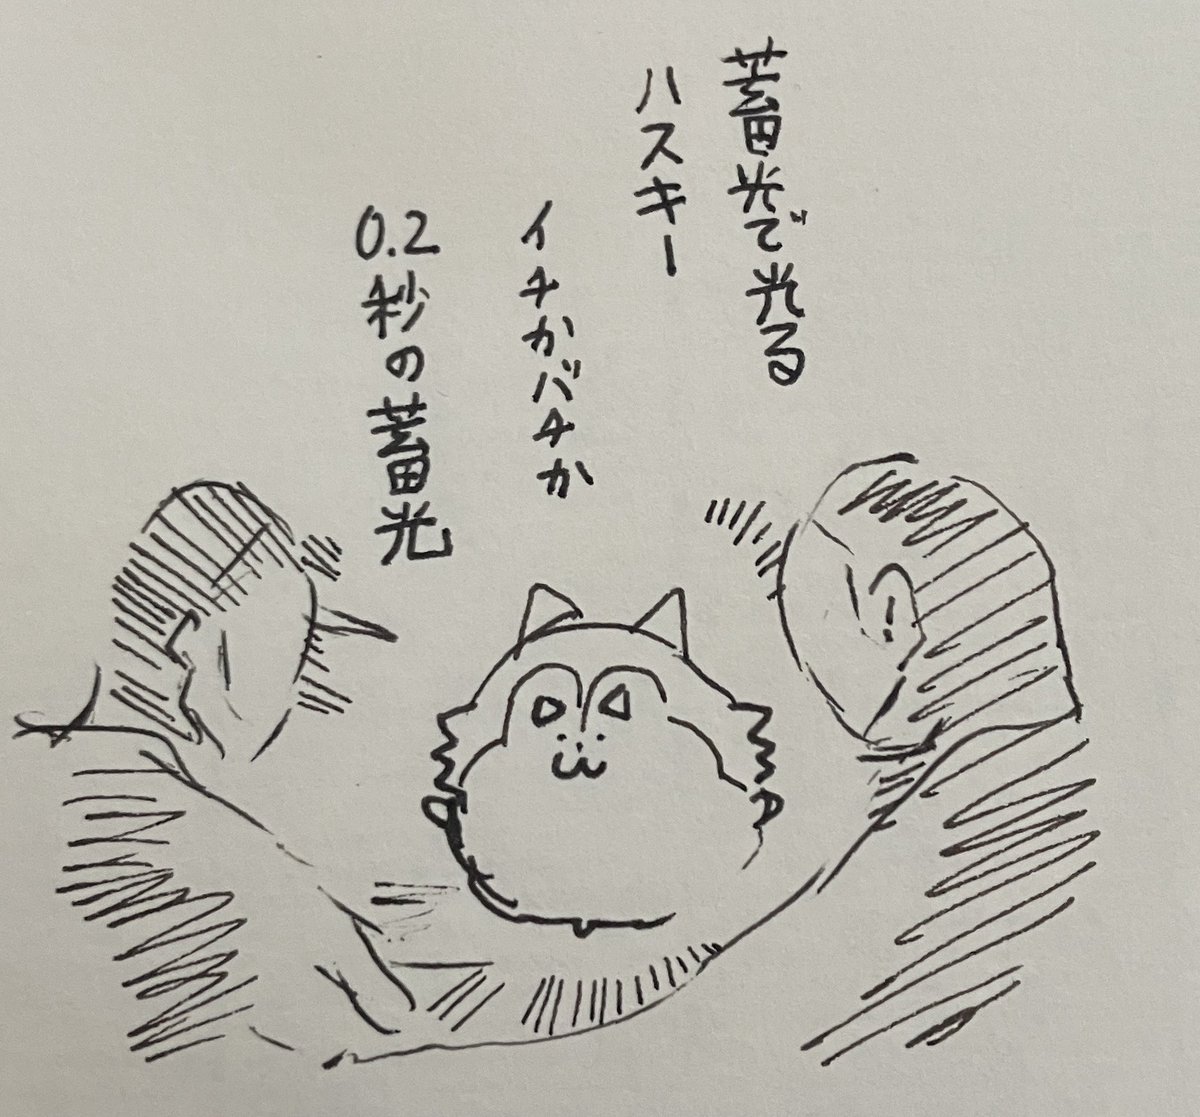 蓄光で光る
ハスキー
イチかバチか
0.2秒の蓄光